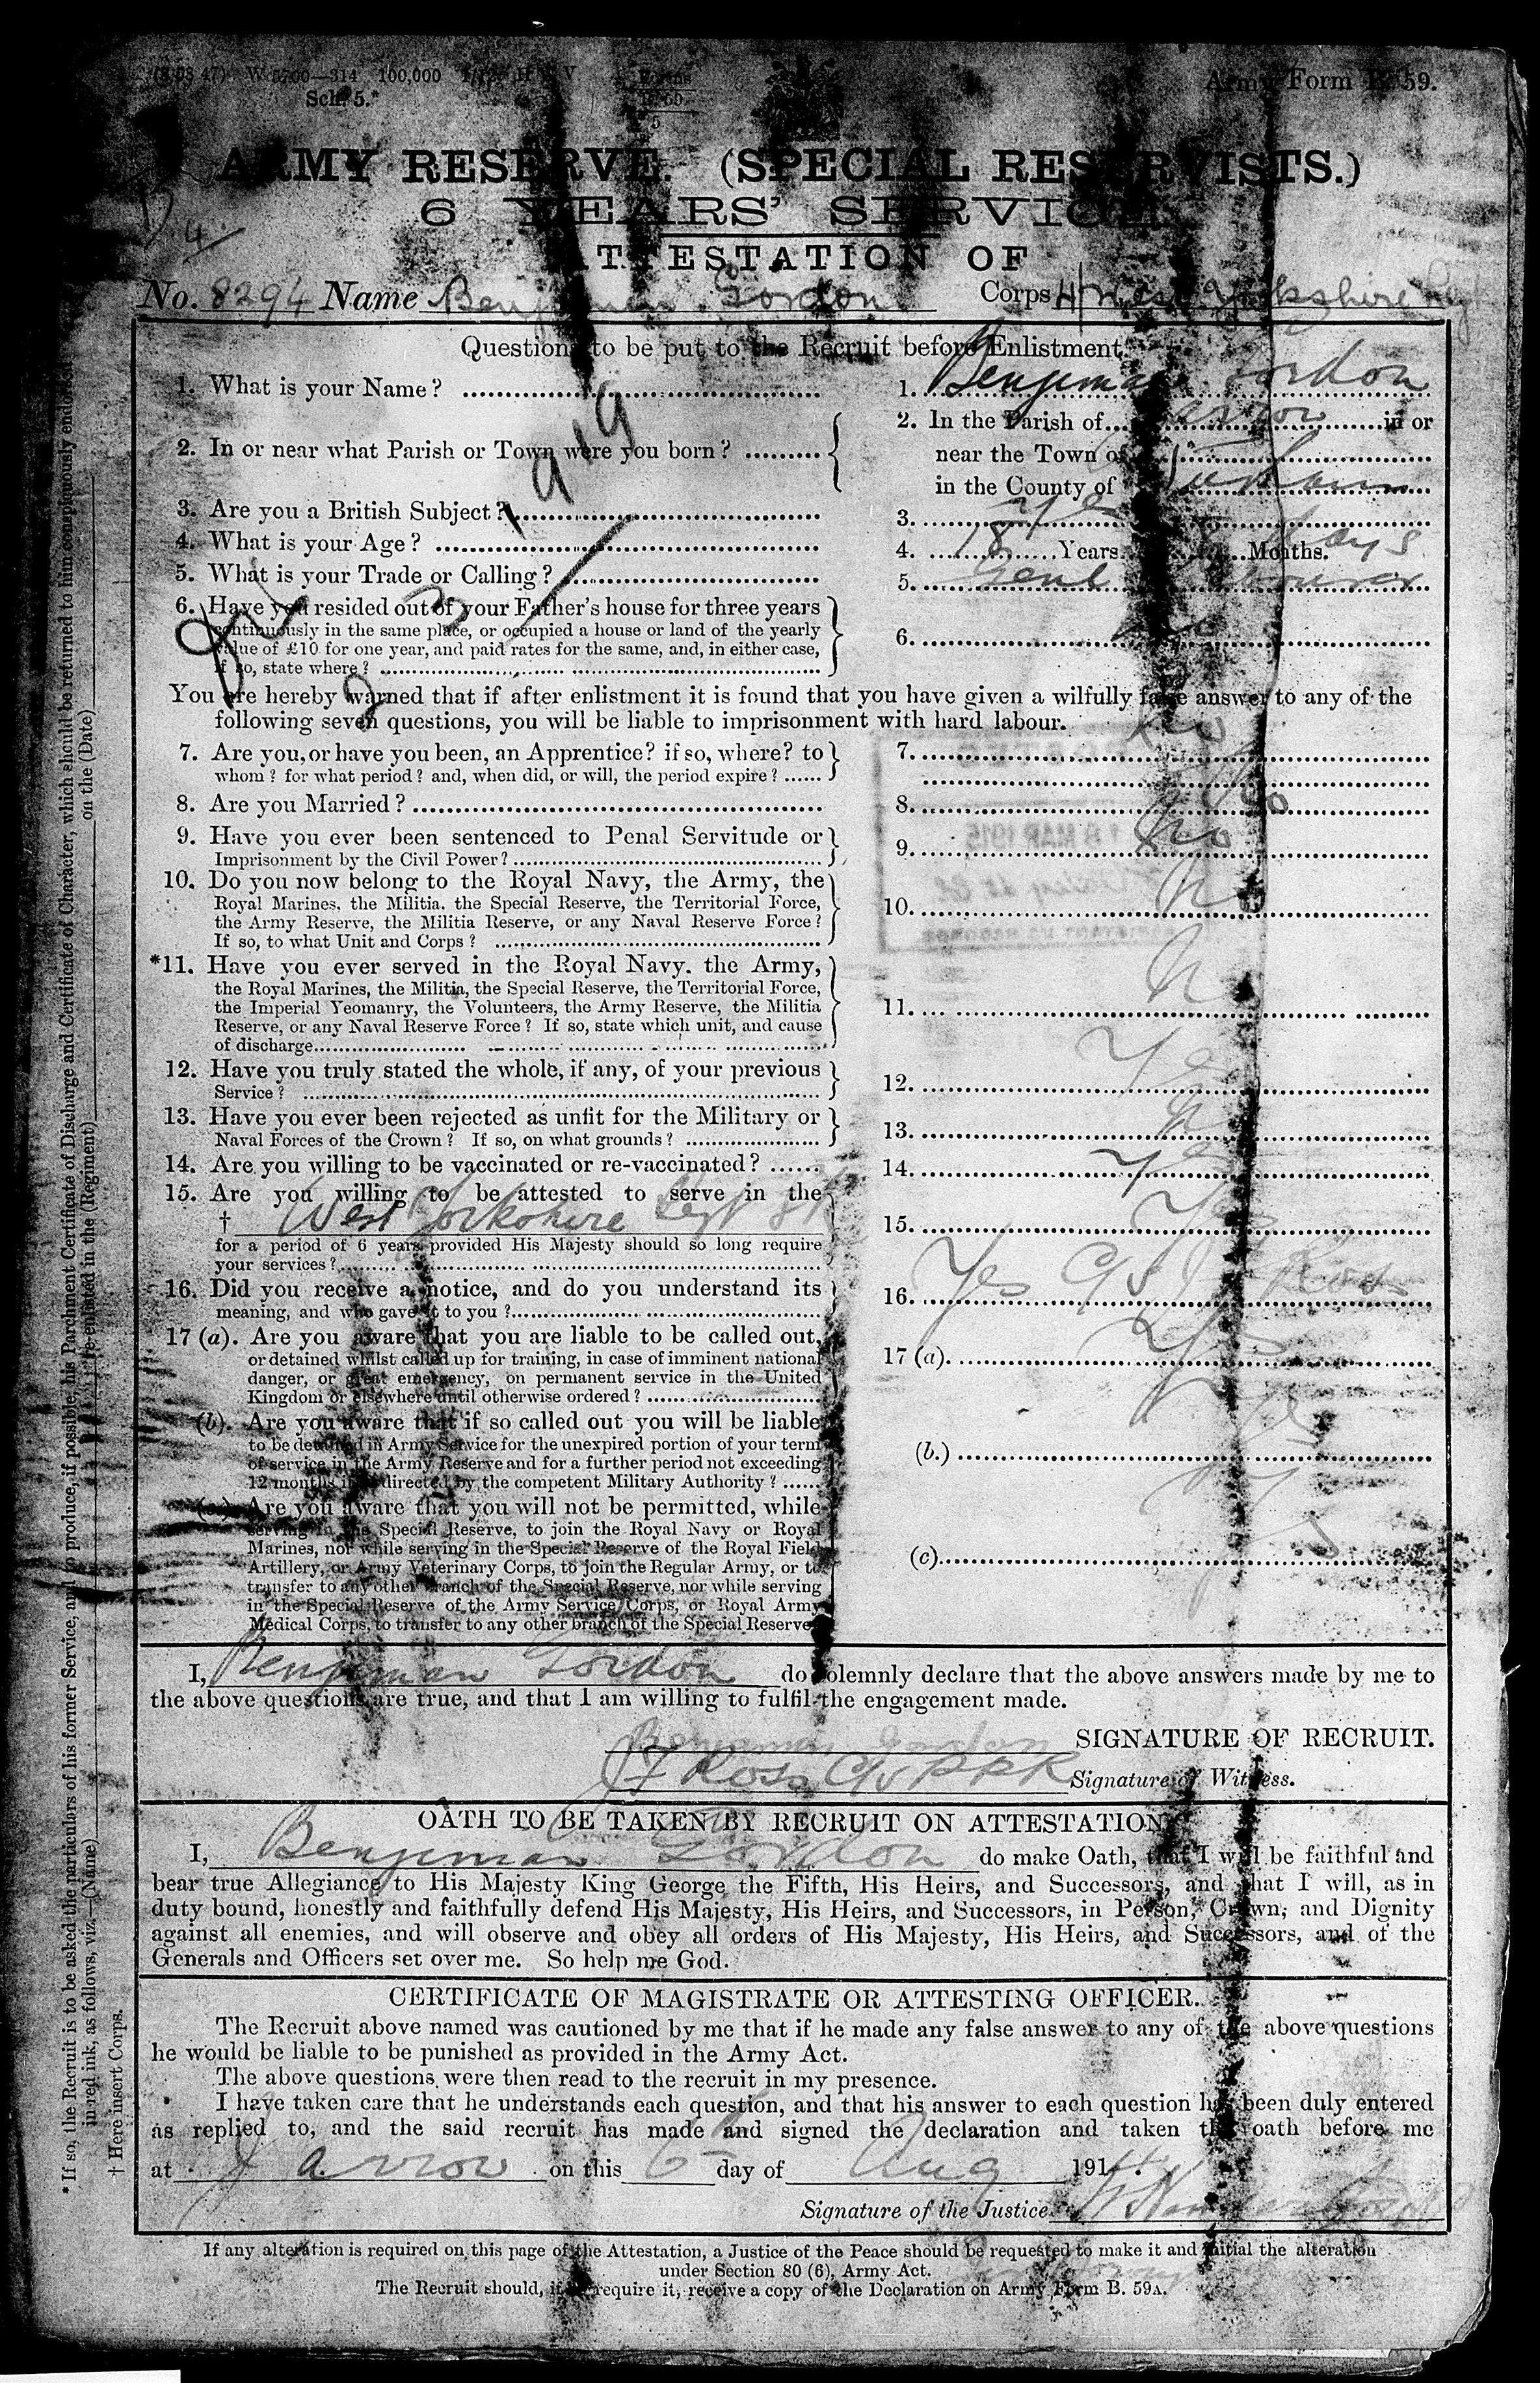 W 5700—314 100,000
Sch. 5.
Army Form B. 59.
ARMY RESERVE. (SPECIAL RESERVISTS.)
6 YEARS' SERVICE.
ATTESTATION OF
No. 8294 Name Benjeman Gordon Corps 4 West Yorkshire Regt
Questions to be put to the Recruit before Enlistment.
1. What is your Name? 1. Benjeman Gordon
2. In or near what Parish or Town were you born? 2. In the Parish of Jarrow in or
near the Town of
in the County of Durham
3. Are you a British Subject? 3. Yes
4. What is your Age? 4. 18 Years Months. days
5. What is your Trade or Calling? 5. Genl Labourer
6. Have you resided out of your Father's house for three years
continuously in the same place, or occupied a house or land of the yearly
value of £10 for one year, and paid rates for the same, and, in either case,
if so, state where? 6. No
1919
You are hereby warned that if after enlistment it is found that you have given a wilfully false answer to any of the
following seven questions, you will be liable to imprisonment with hard labour.
7. Are you, or have you been, an Apprentice? if so, where? to
whom? for what period? and, when did, or will, the period expire? 7. No
8. Are you Married? 8. No
9. Have you ever been sentenced to Penal Servitude or
Imprisonment by the Civil Power? 9. No
10. Do you now belong to the Royal Navy, the Army, the
Royal Marines, the Militia, the Special Reserve, the Territorial Force,
the Army Reserve, the Militia Reserve, or any Naval Reserve Force?
If so, to what Unit and Corps? 10. No
*11. Have you ever served in the Royal Navy, the Army,
the Royal Marines, the Militia, the Special Reserve, the Territorial Force,
the Imperial Yeomanry, the Volunteers, the Army Reserve, the Militia
Reserve, or any Naval Reserve Force? If so, state which unit, and cause
of discharge 11. No
12. Have you truly stated the whole, if any, of your previous
Service? 12. Yes
13. Have you ever been rejected as unfit for the Military or
Naval Forces of the Crown? If so, on what grounds? 13. No
14. Are you willing to be vaccinated or re-vaccinated? 14. Yes
15. Are you willing to be attested to serve in the
† West Yorkshire Regt SR
for a period of 6 years provided His Majesty should so long require
your services? 15. Yes
16. Did you receive a notice, and do you understand its
meaning, and who gave it to you? 16. Yes C/S Ross
17 (a). Are you aware that you are liable to be called out,
or detained whilst called up for training, in case of imminent national
danger, or great emergency, on permanent service in the United
Kingdom or elsewhere until otherwise ordered? 17 (a). Yes
(b). Are you aware that if so called out you will be liable
to be detained in Army Service for the unexpired portion of your term
of service in the Army Reserve and for a further period not exceeding
12 months if so directed by the competent Military Authority? (b.) Yes
(c.) Are you aware that you will not be permitted, while
serving in the Special Reserve, to join the Royal Navy or Royal
Marines, nor while serving in the Special Reserve of the Royal Field
Artillery, or Army Veterinary Corps, to join the Regular Army, or to
transfer to any other branch of the Special Reserve, nor while serving
in the Special Reserve of the Army Service Corps, or Royal Army
Medical Corps, to transfer to any other branch of the Special Reserve (c). Yes
I, Benjeman Gordon do solemnly declare that the above answers made by me to
the above questions are true, and that I am willing to fulfil the engagement made.
Benjeman Gordon SIGNATURE OF RECRUIT.
Ross Signature of Witness.
OATH TO BE TAKEN BY RECRUIT ON ATTESTATION.
I, Benjeman Gordon do make Oath, that I will be faithful and
bear true Allegiance to His Majesty King George the Fifth, His Heirs, and Successors, and that I will, as in
duty bound, honestly and faithfully defend His Majesty, His Heirs, and Successors, in Person, Crown, and Dignity
against all enemies, and will observe and obey all orders of His Majesty, His Heirs, and Successors, and of the
Generals and Officers set over me. So help me God.
CERTIFICATE OF MAGISTRATE OR ATTESTING OFFICER.
The Recruit above named was cautioned by me that if he made any false answer to any of the above questions
he would be liable to be punished as provided in the Army Act.
The above questions were then read to the recruit in my presence.
I have taken care that he understands each question, and that his answer to each question has been duly entered
as replied to, and the said recruit has made and signed the declaration and taken the oath before me
at Jarrow on this 6th day of Aug 1914.
Signature of the Justice
If any alteration is required on this page of the Attestation, a Justice of the Peace should be requested to make it and initial the alteration
under Section 80 (6), Army Act.
The Recruit should, if he require it, receive a copy of the Declaration on Army Form B. 59A.
* If so, the Recruit is to be asked the particulars of his former Service, and to produce, if possible, his Parchment Certificate of Discharge and Certificate of Character, which should be returned to him conspicuously endorsed
in red ink, as follows, viz.—(Name) re-enlisted in the (Regiment) on the (Date)
† Here insert Corps.